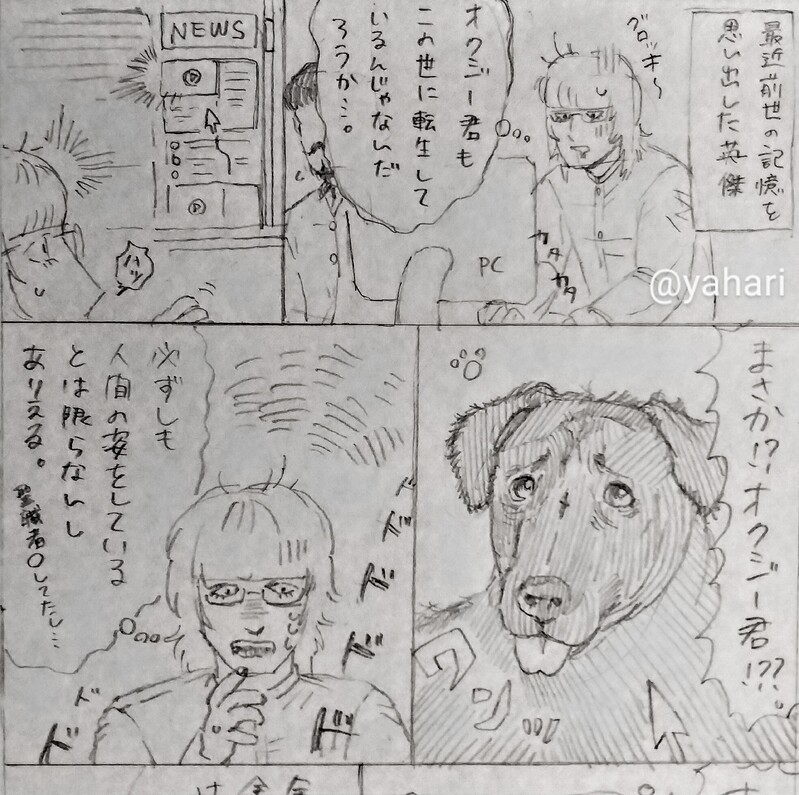 最近前世の記憶を
思い出した英傑
グロッキ〜
オクジー君も
この世に転生して
いるんじゃないだ
ろうか…。
PC
カタ
カタ
NEWS
@yahari
まさか!?オクジー君!??。
ワンッ
必ずしも
人間の姿をしている
とは限らないし
ありえる。
聖職者〇してたし…
ドドドド
ドドド